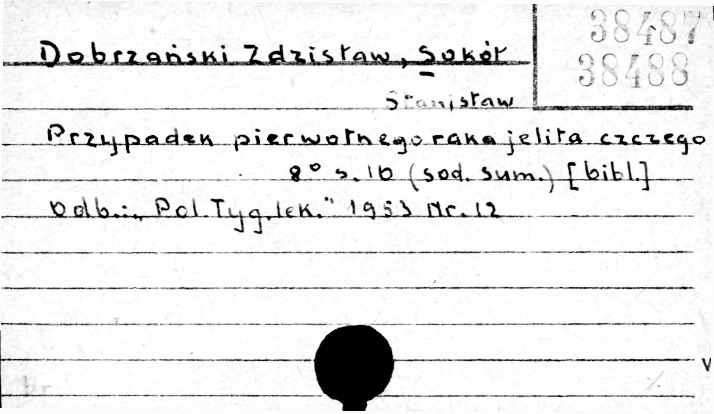 38487
38488
Dobrzański Zdzisław, Sokół
Stanisław
Przypadek pierwotnego raka jelita czczego
8° s. 10 (sod. sum.) [bibl.]
Odb.: "Pol. Tyg. lek." 1953 Nr. 12